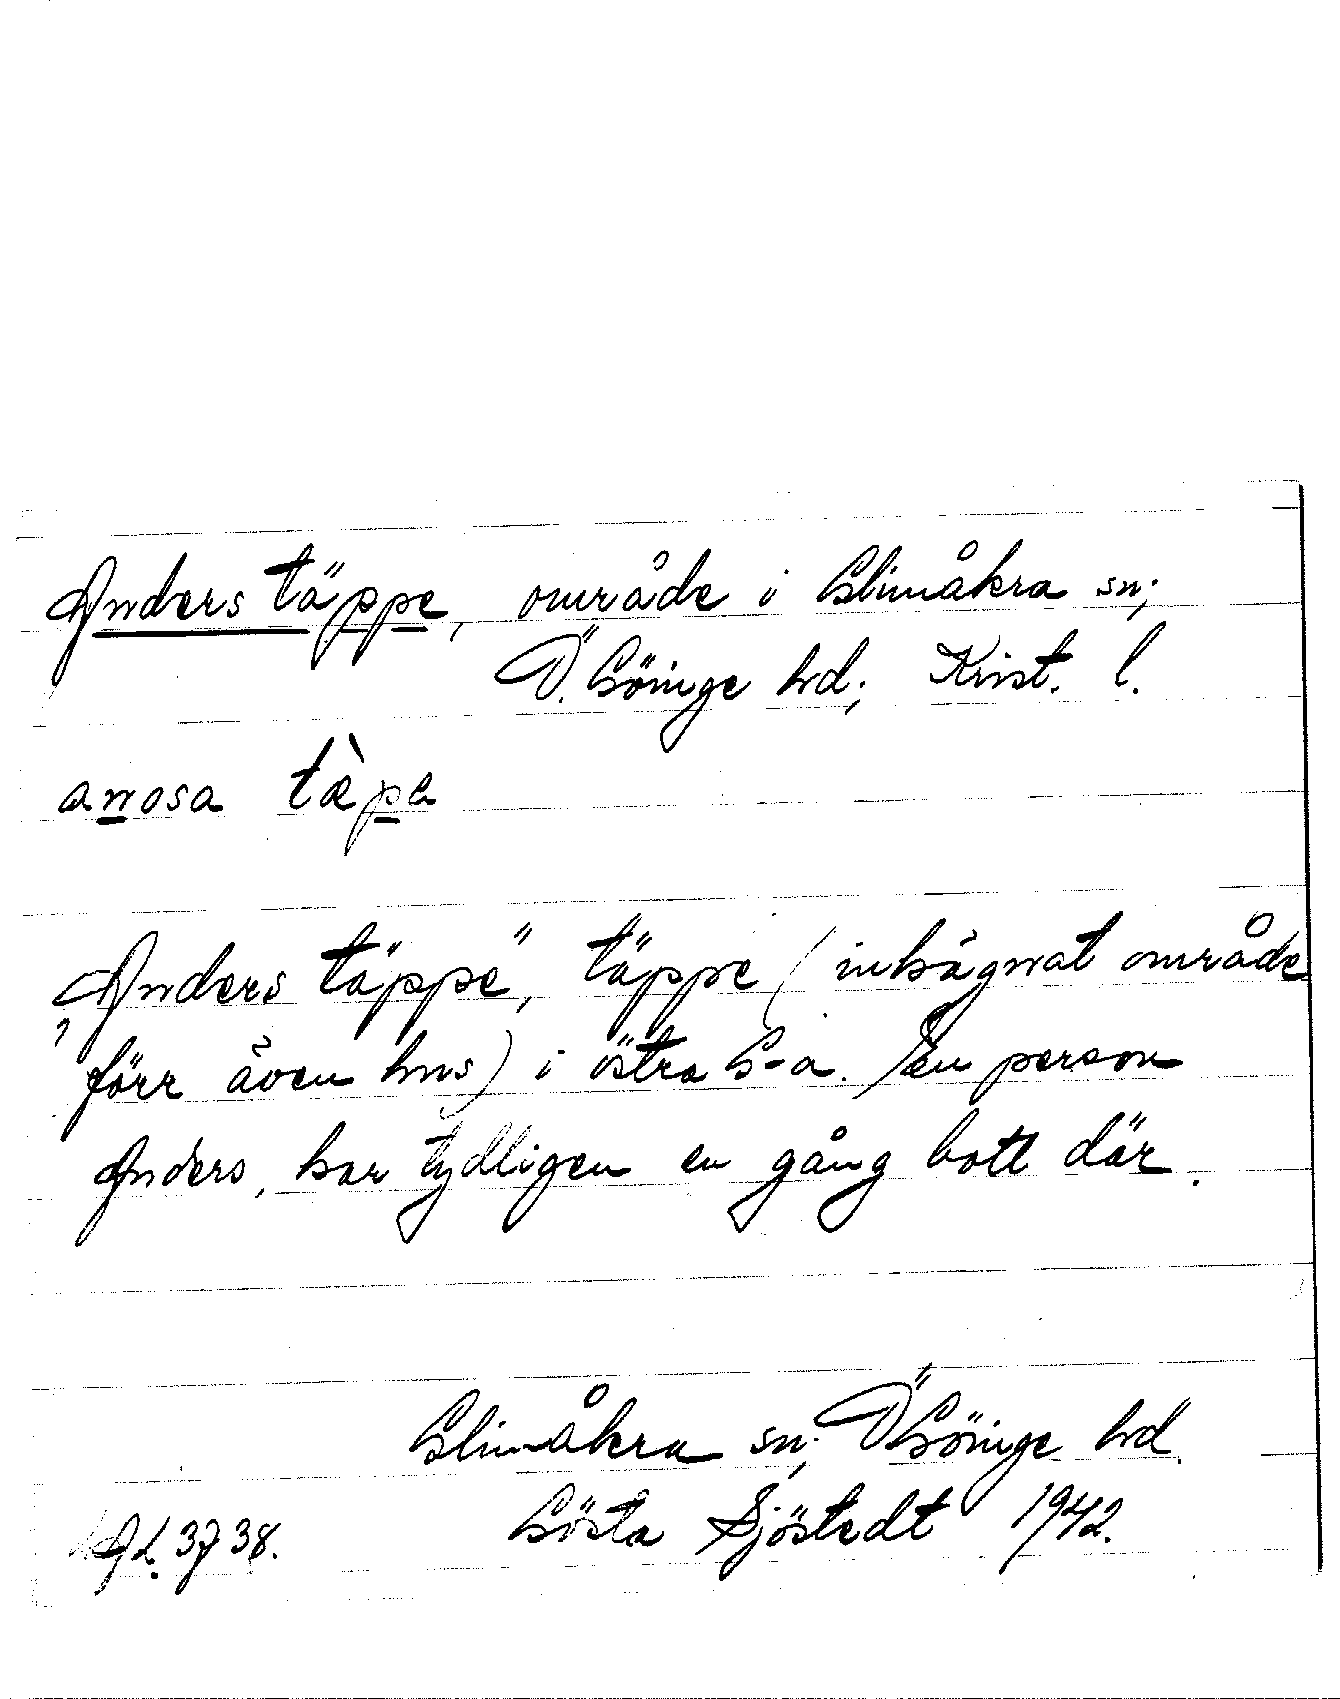 Anders täppe, område i Glimåkra sn;
Ö. Göinge hd; Krist. l.
anosa tàpa
"Anders täppe", täppe (inhägnat område
förr även hus) i östra G-a. En person
Anders, har tydligen en gång bott där.
Glimåkra sn; Ö Göinge hd.
Gösta Sjöstedt 1942.
Ad. 3738.